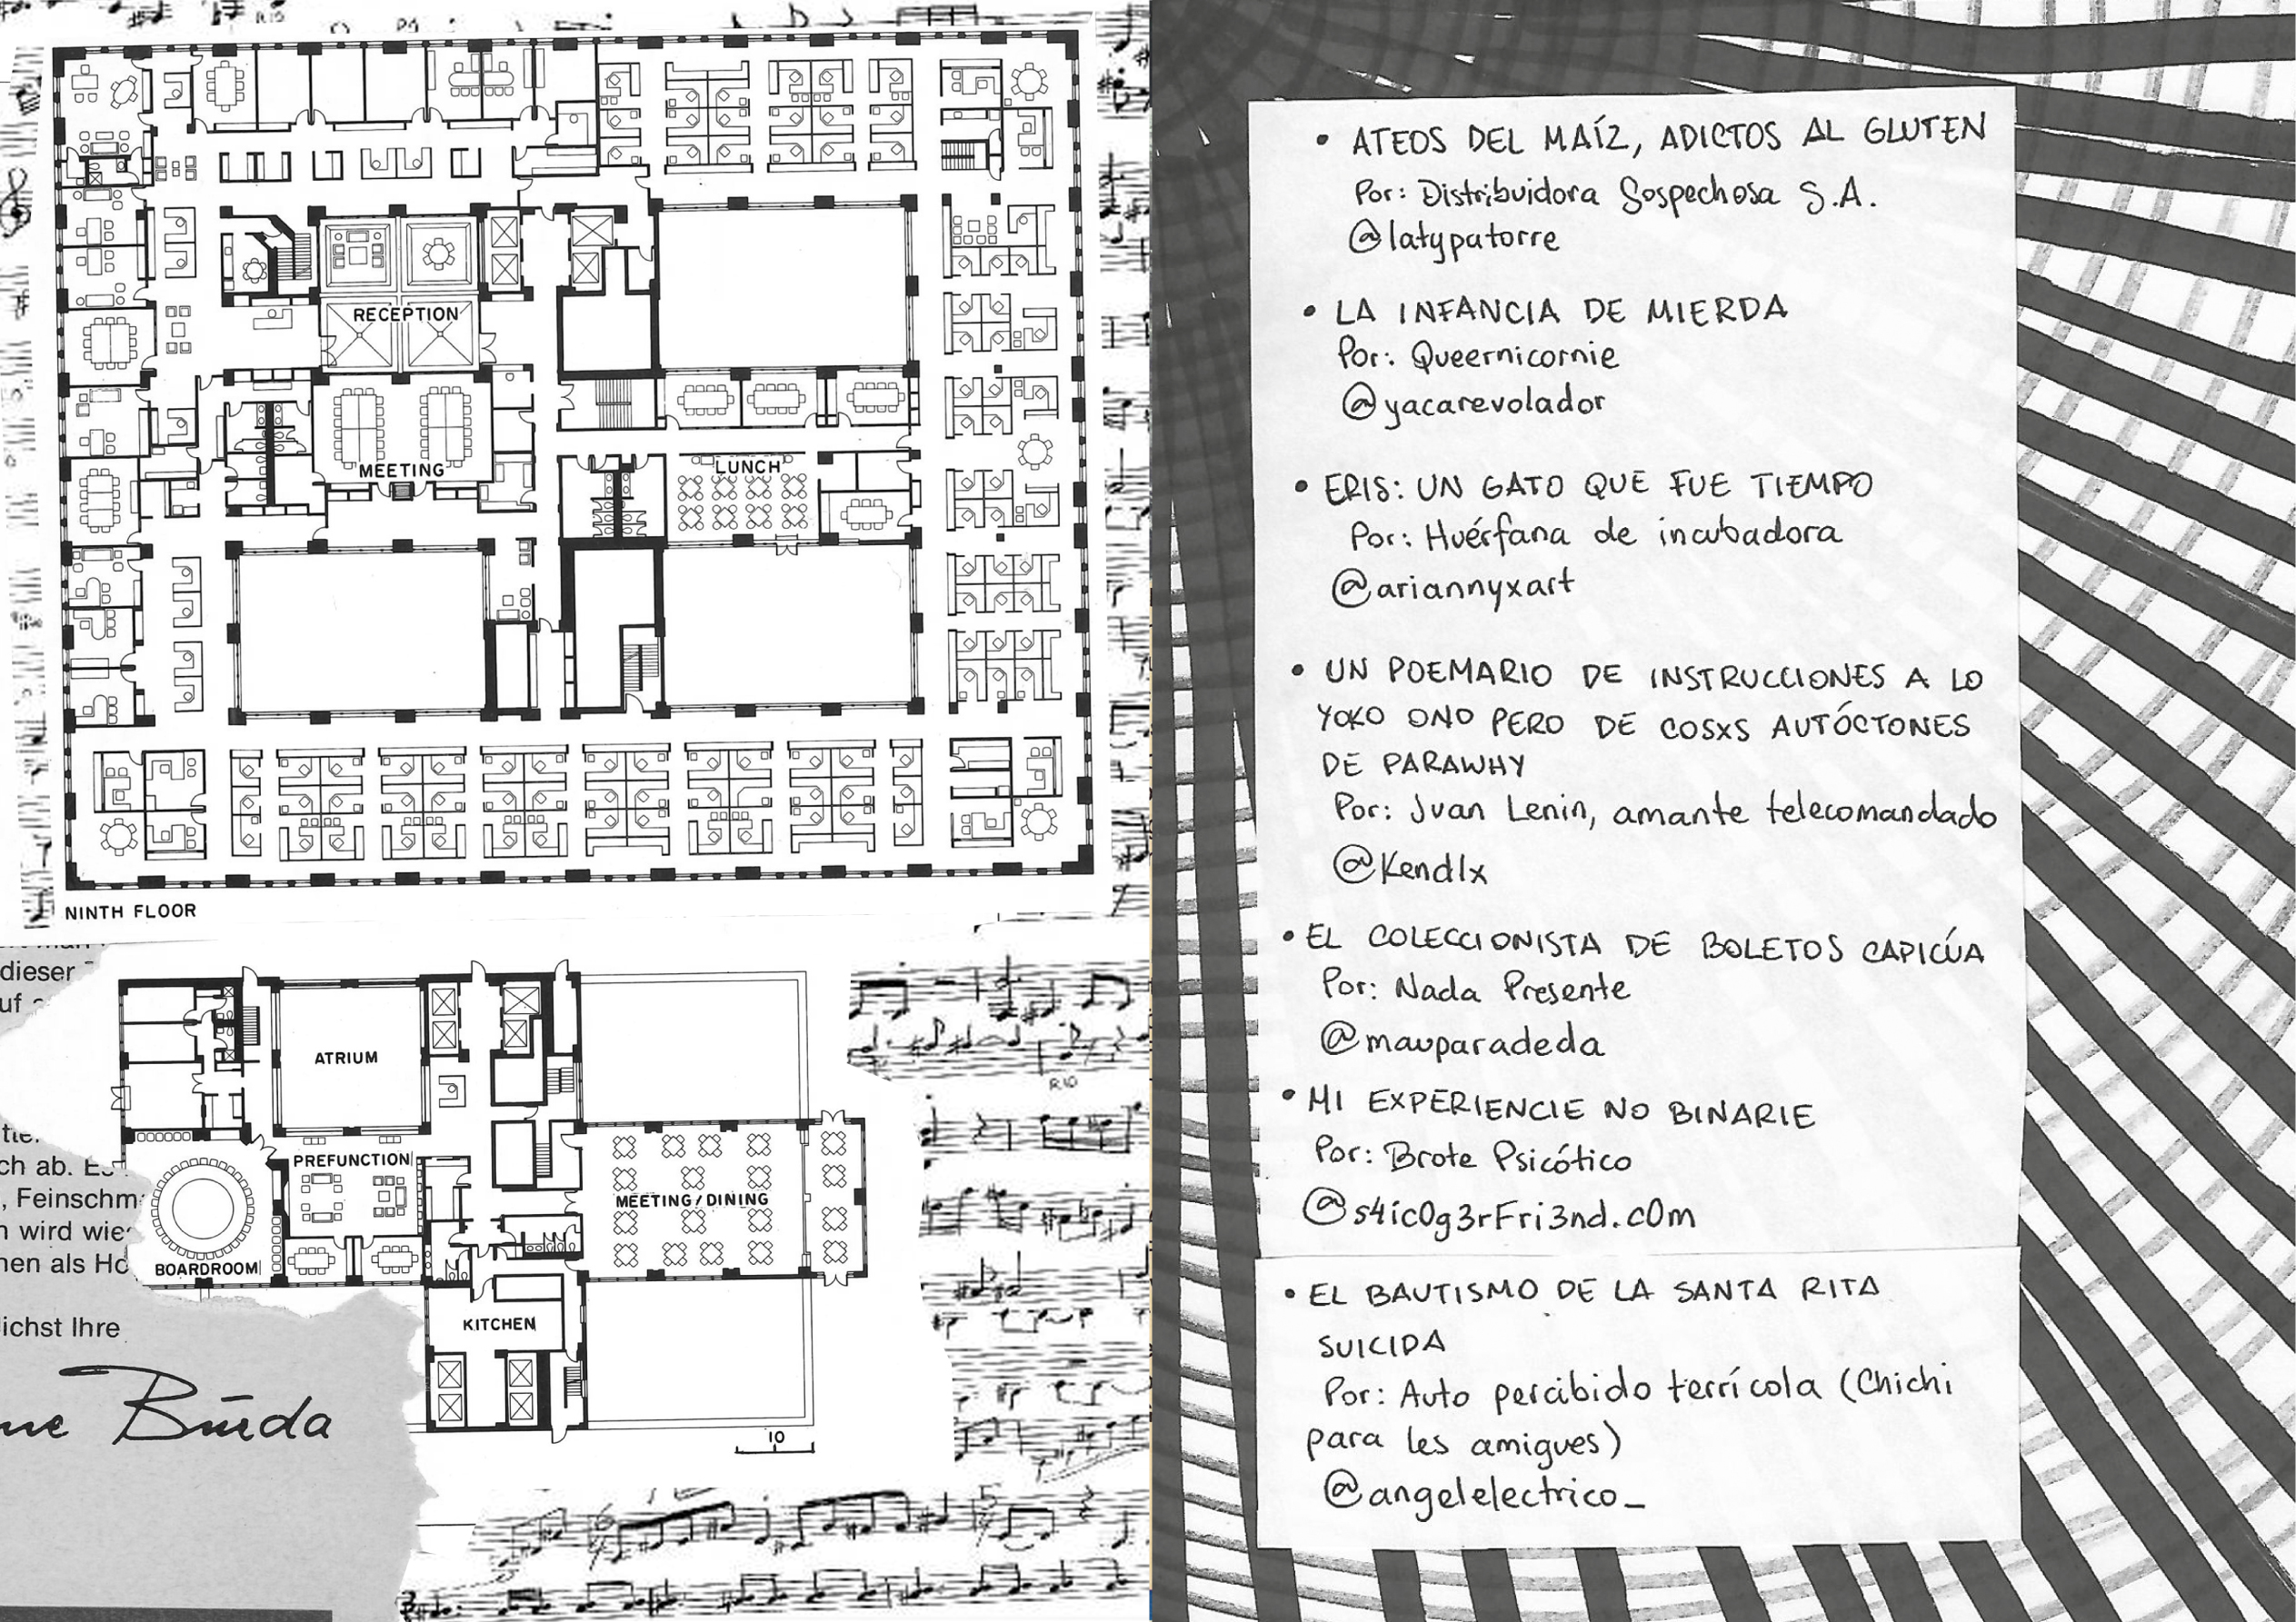 R10
RECEPTION
MEETING
LUNCH
NINTH FLOOR
dieser
uf
ATRIUM
R10
PREFUNCTION
ch ab. Es
, Feinschm
MEETING/DINING
n wird wie
nen als Ho
BOARDROOM
KITCHEN
lichst Ihre
Burda
10
• ATEOS DEL MAÍZ, ADICTOS AL GLUTEN
Por: Distribuidora Sospechosa S.A.
@latypatorre
• LA INFANCIA DE MIERDA
Por: Queernicornie
@yacarevolador
• ERIS: UN GATO QUE FUE TIEMPO
Por: Huérfana de incubadora
@ariannyxart
• UN POEMARIO DE INSTRUCCIONES A LO
YOKO ONO PERO DE COSXS AUTÓCTONES
DE PARAWHY
Por: Juan Lenin, amante telecomandado
@Kendlx
• EL COLECCIONISTA DE BOLETOS CAPICÚA
Por: Nada Presente
@mauparadeda
• MI EXPERIENCIE NO BINARIE
Por: Brote Psicótico
@s4ic0g3rFri3nd.c0m
• EL BAUTISMO DE LA SANTA RITA
SUICIDA
Por: Auto percibido terrícola (Chichi
para les amigues)
@angelelectrico_